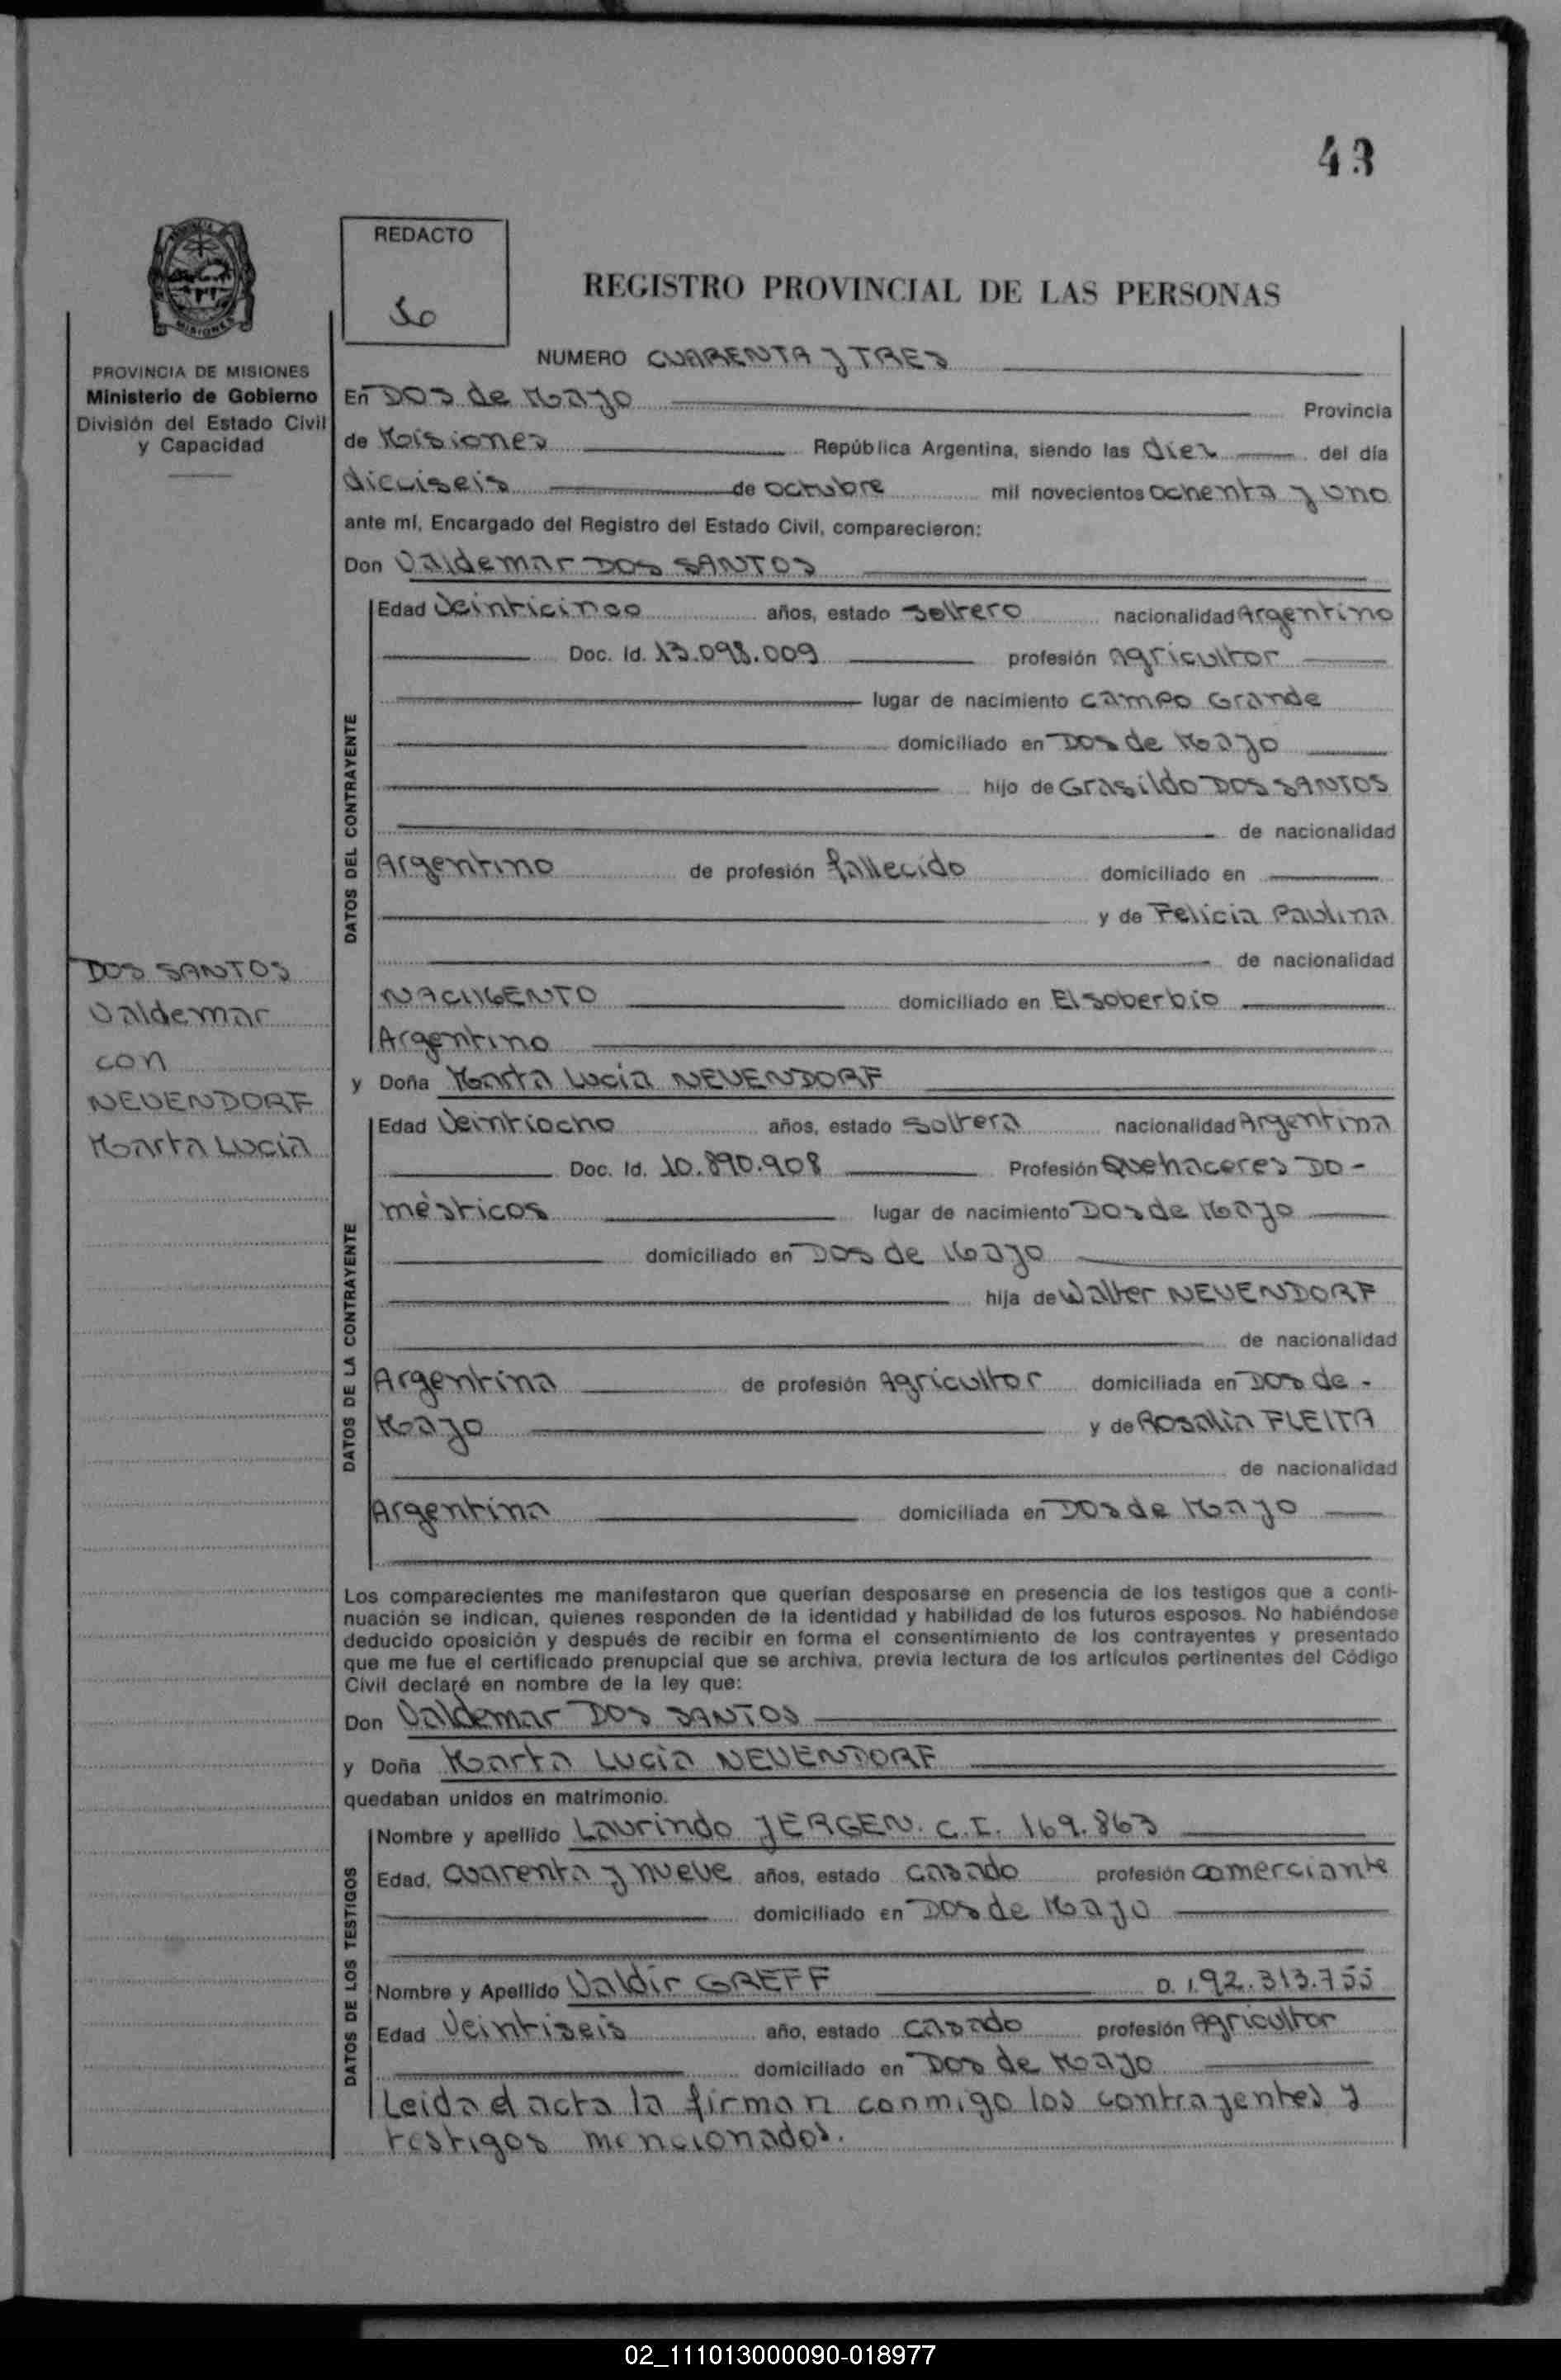 43
REDACTO
REGISTRO PROVINCIAL DE LAS PERSONAS
PROVINCIA DE MISIONES
Ministerio de Gobierno
División del Estado Civil
y Capacidad
NUMERO CUARENTA y TRES
En DOS de Mayo Provincia
de Misiones República Argentina, siendo las diez del día
dieciseis de octubre mil novecientos ochenta y uno
ante mí, Encargado del Registro del Estado Civil, comparecieron:
Don Valdemar DOS SANTOS
DATOS DEL CONTRAYENTE
Edad Veinticinco años, estado soltero nacionalidad Argentino
Doc. Id. 13.098.009 profesión Agricultor
lugar de nacimiento campo Grande
domiciliado en Dos de Mayo
hijo de Grasildo DOS SANTOS
de nacionalidad
Argentino de profesión fallecido domiciliado en
y de Felicia Paulina
de nacionalidad
NACIMENTO domiciliado en El soberbio
Argentino
DOS SANTOS
Valdemar
con
NEUENDORF
Marta Lucia
y Doña Marta Lucia NEUENDORF
DATOS DE LA CONTRAYENTE
Edad Veintiocho años, estado soltera nacionalidad Argentina
Doc. Id. 10.890.908 Profesión Quehaceres DO-
mésticos lugar de nacimiento Dos de Mayo
domiciliado en Dos de Mayo
hija de Walter NEUENDORF
de nacionalidad
Argentina de profesión Agricultor domiciliada en Dos de -
Mayo y de Rosalia FLEITA
de nacionalidad
Argentina domiciliada en Dos de Mayo
Los comparecientes me manifestaron que querían desposarse en presencia de los testigos que a conti-
nuación se indican, quienes responden de la identidad y habilidad de los futuros esposos. No habiéndose
deducido oposición y después de recibir en forma el consentimiento de los contrayentes y presentado
que me fue el certificado prenupcial que se archiva, previa lectura de los artículos pertinentes del Código
Civil declaré en nombre de la ley que:
Don Valdemar DOS SANTOS
y Doña Marta Lucia NEUENDORF
quedaban unidos en matrimonio.
DATOS DE LOS TESTIGOS
Nombre y apellido Laurindo JERGEN. C.I. 169.863
Edad, cuarenta y nueve años, estado casado profesión comerciante
domiciliado en Dos de Mayo
Nombre y Apellido Valdir GREFF D.I.92.313.755
Edad Veintiseis año, estado casado profesión Agricultor
domiciliado en Dos de Mayo
Leida el acta la firman conmigo los contrayentes y
testigos mencionados.
02_111013000090-018977